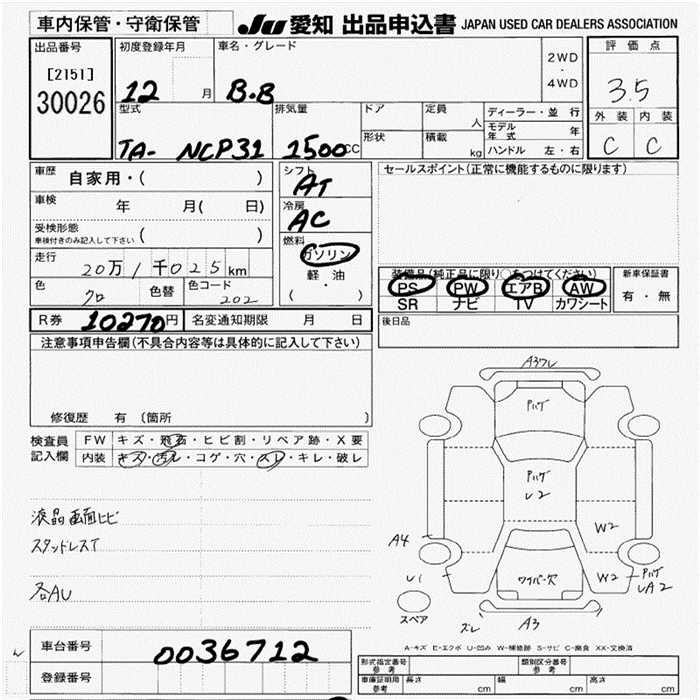 車内保管・守衛保管
JU 愛知 出品申込書 JAPAN USED CAR DEALERS ASSOCIATION
出品番号
[2151]
30026
初度登録年月
12 月
車名・グレード
B.B
2WD
・
4WD
評価点
3.5
外装 内装
C C
型式
TA- NCP31
排気量
1500cc
ドア
形状
定員
人
積載
kg
ディーラー・並行
モデル年式 年
ハンドル 左・右
車歴
自家用・( )
車検 年 月( 日)
受検形態
車検付きのみ記入して下さい ( )
走行
20万1千025km
色
クロ
色替
色コード
202
シフト
AT
冷房
AC
燃料
ガソリン
軽油
( ・ )
セールスポイント(正常に機能するものに限ります)
装備品(純正品に限り○をつけてください)
PS PW エアB AW
SR ナビ TV カワシート
新車保証書
有・無
R券 10270円 名変通知期限 月 日
後日品
注意事項申告欄(不具合内容等は具体的に記入して下さい)
修復歴 有 〔箇所
検査員
記入欄
FW キズ・飛石・ヒビ割・リペア跡・X要
内装 キズ・汚レ・コゲ・穴・スレ・キレ・破レ
液晶画面ヒビ
スタッドレスT
各AU
A3ワレ
ハゲ
ハゲ
U2
W2
A4
U1
W2
ハゲ
UA2
ワイパー欠
スペア
ズレ A3
A-キズ E-エクボ U-凹み W-補修跡 S-サビ C-腐食 XX-交換済
車台番号
0036712
登録番号
形式指定番号
参考
類別区分番号
参考
車庫証明用
参考
長さ cm 幅 cm 高さ cm